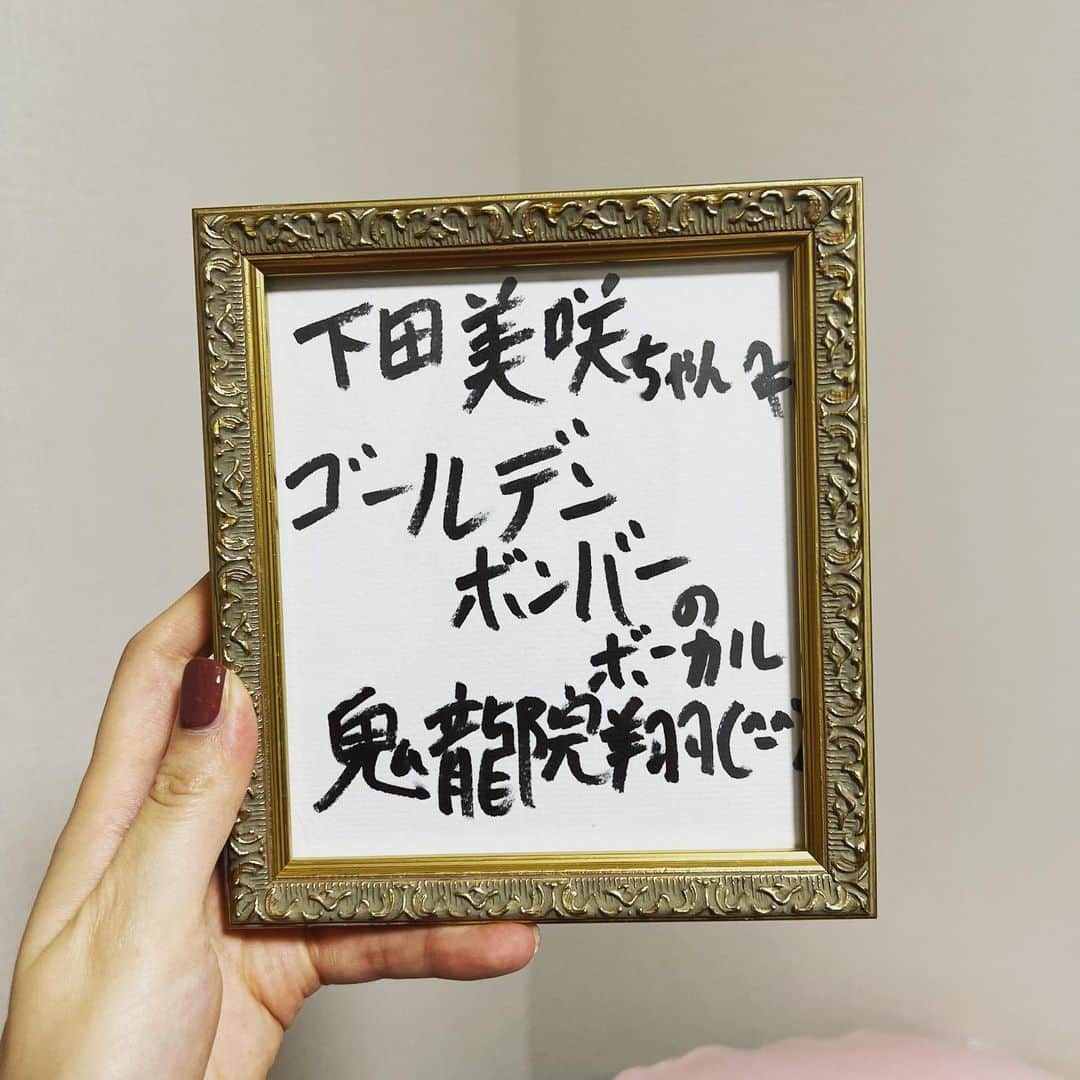 下田美咲ちゃん
ゴールデン
ボンバーの
ボーカル
鬼龍院翔